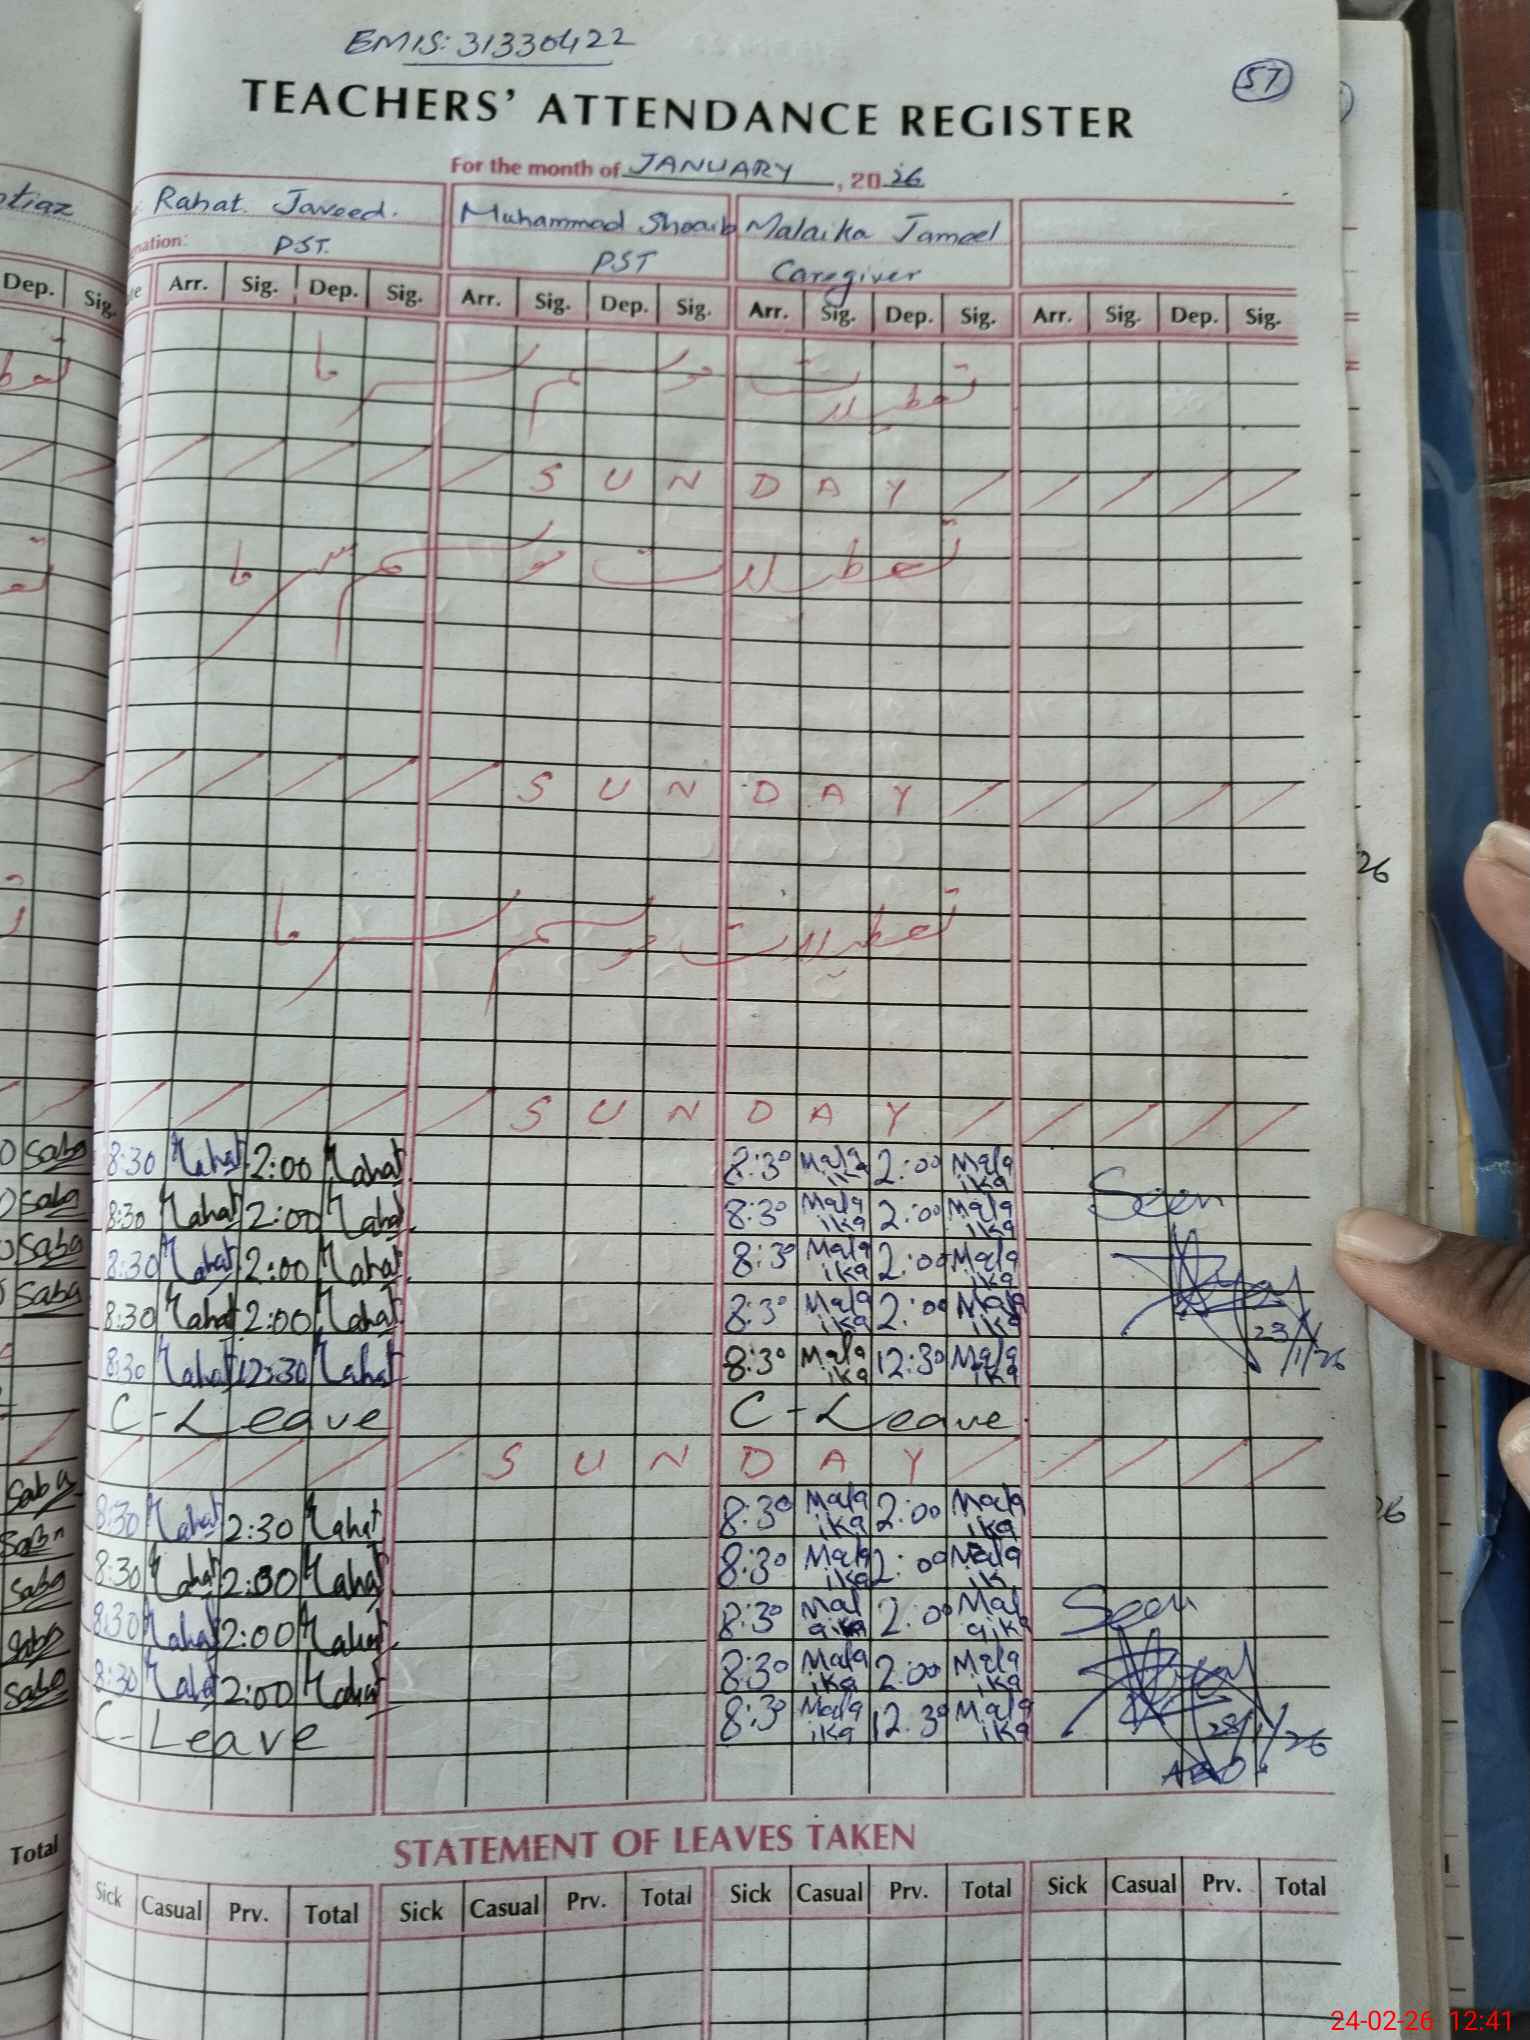 EMIS: 31330422
57
TEACHERS' ATTENDANCE REGISTER
For the month of JANUARY, 2026
Rahat Javeed. Muhammad Shoaib Malaika Jameel
nation: PST. PST Caregiver
Dep. Sig. Arr. Sig. Dep. Sig. Arr. Sig. Dep. Sig. Arr. Sig. Dep. Sig. Arr. Sig. Dep. Sig.
تعطیلات موسم سرما
S U N D A Y
تعطیلات موسم سرما
S U N D A Y
26
تعطیلات موسم سرما
S U N D A Y
Saba 8:30 Rahat 2:00 Rahat 8:30 Malaika 2:00 Malaika
Saba 8:30 Rahat 2:00 Rahat 8:30 Malaika 2:00 Malaika Seen
Saba 8:30 Rahat 2:00 Rahat 8:30 Malaika 2:00 Malaika
Saba 8:30 Rahat 2:00 Rahat 8:30 Malaika 2:00 Malaika 23/1/26
8:30 Rahat 12:30 Rahat 8:30 Malaika 12:30 Malaika
C-Leave C-Leave.
S U N D A Y
Saba 8:30 Rahat 2:30 Rahat 8:30 Malaika 2:00 Malaika
Saba 8:30 Rahat 2:00 Rahat 8:30 Malaika 2:00 Malaik
Saba 8:30 Rahat 2:00 Rahat 8:30 Malaika 2:00 Malaika Seen
Saba 8:30 Rahat 2:00 Rahat 8:30 Malaika 2:00 Malaika
Saba C-Leave 8:30 Malaika 12.30 Malaika 28/1/26
AEO
STATEMENT OF LEAVES TAKEN
Total Sick Casual Prv. Total Sick Casual Prv. Total Sick Casual Prv. Total Sick Casual Prv. Total
24-02-26 12:41